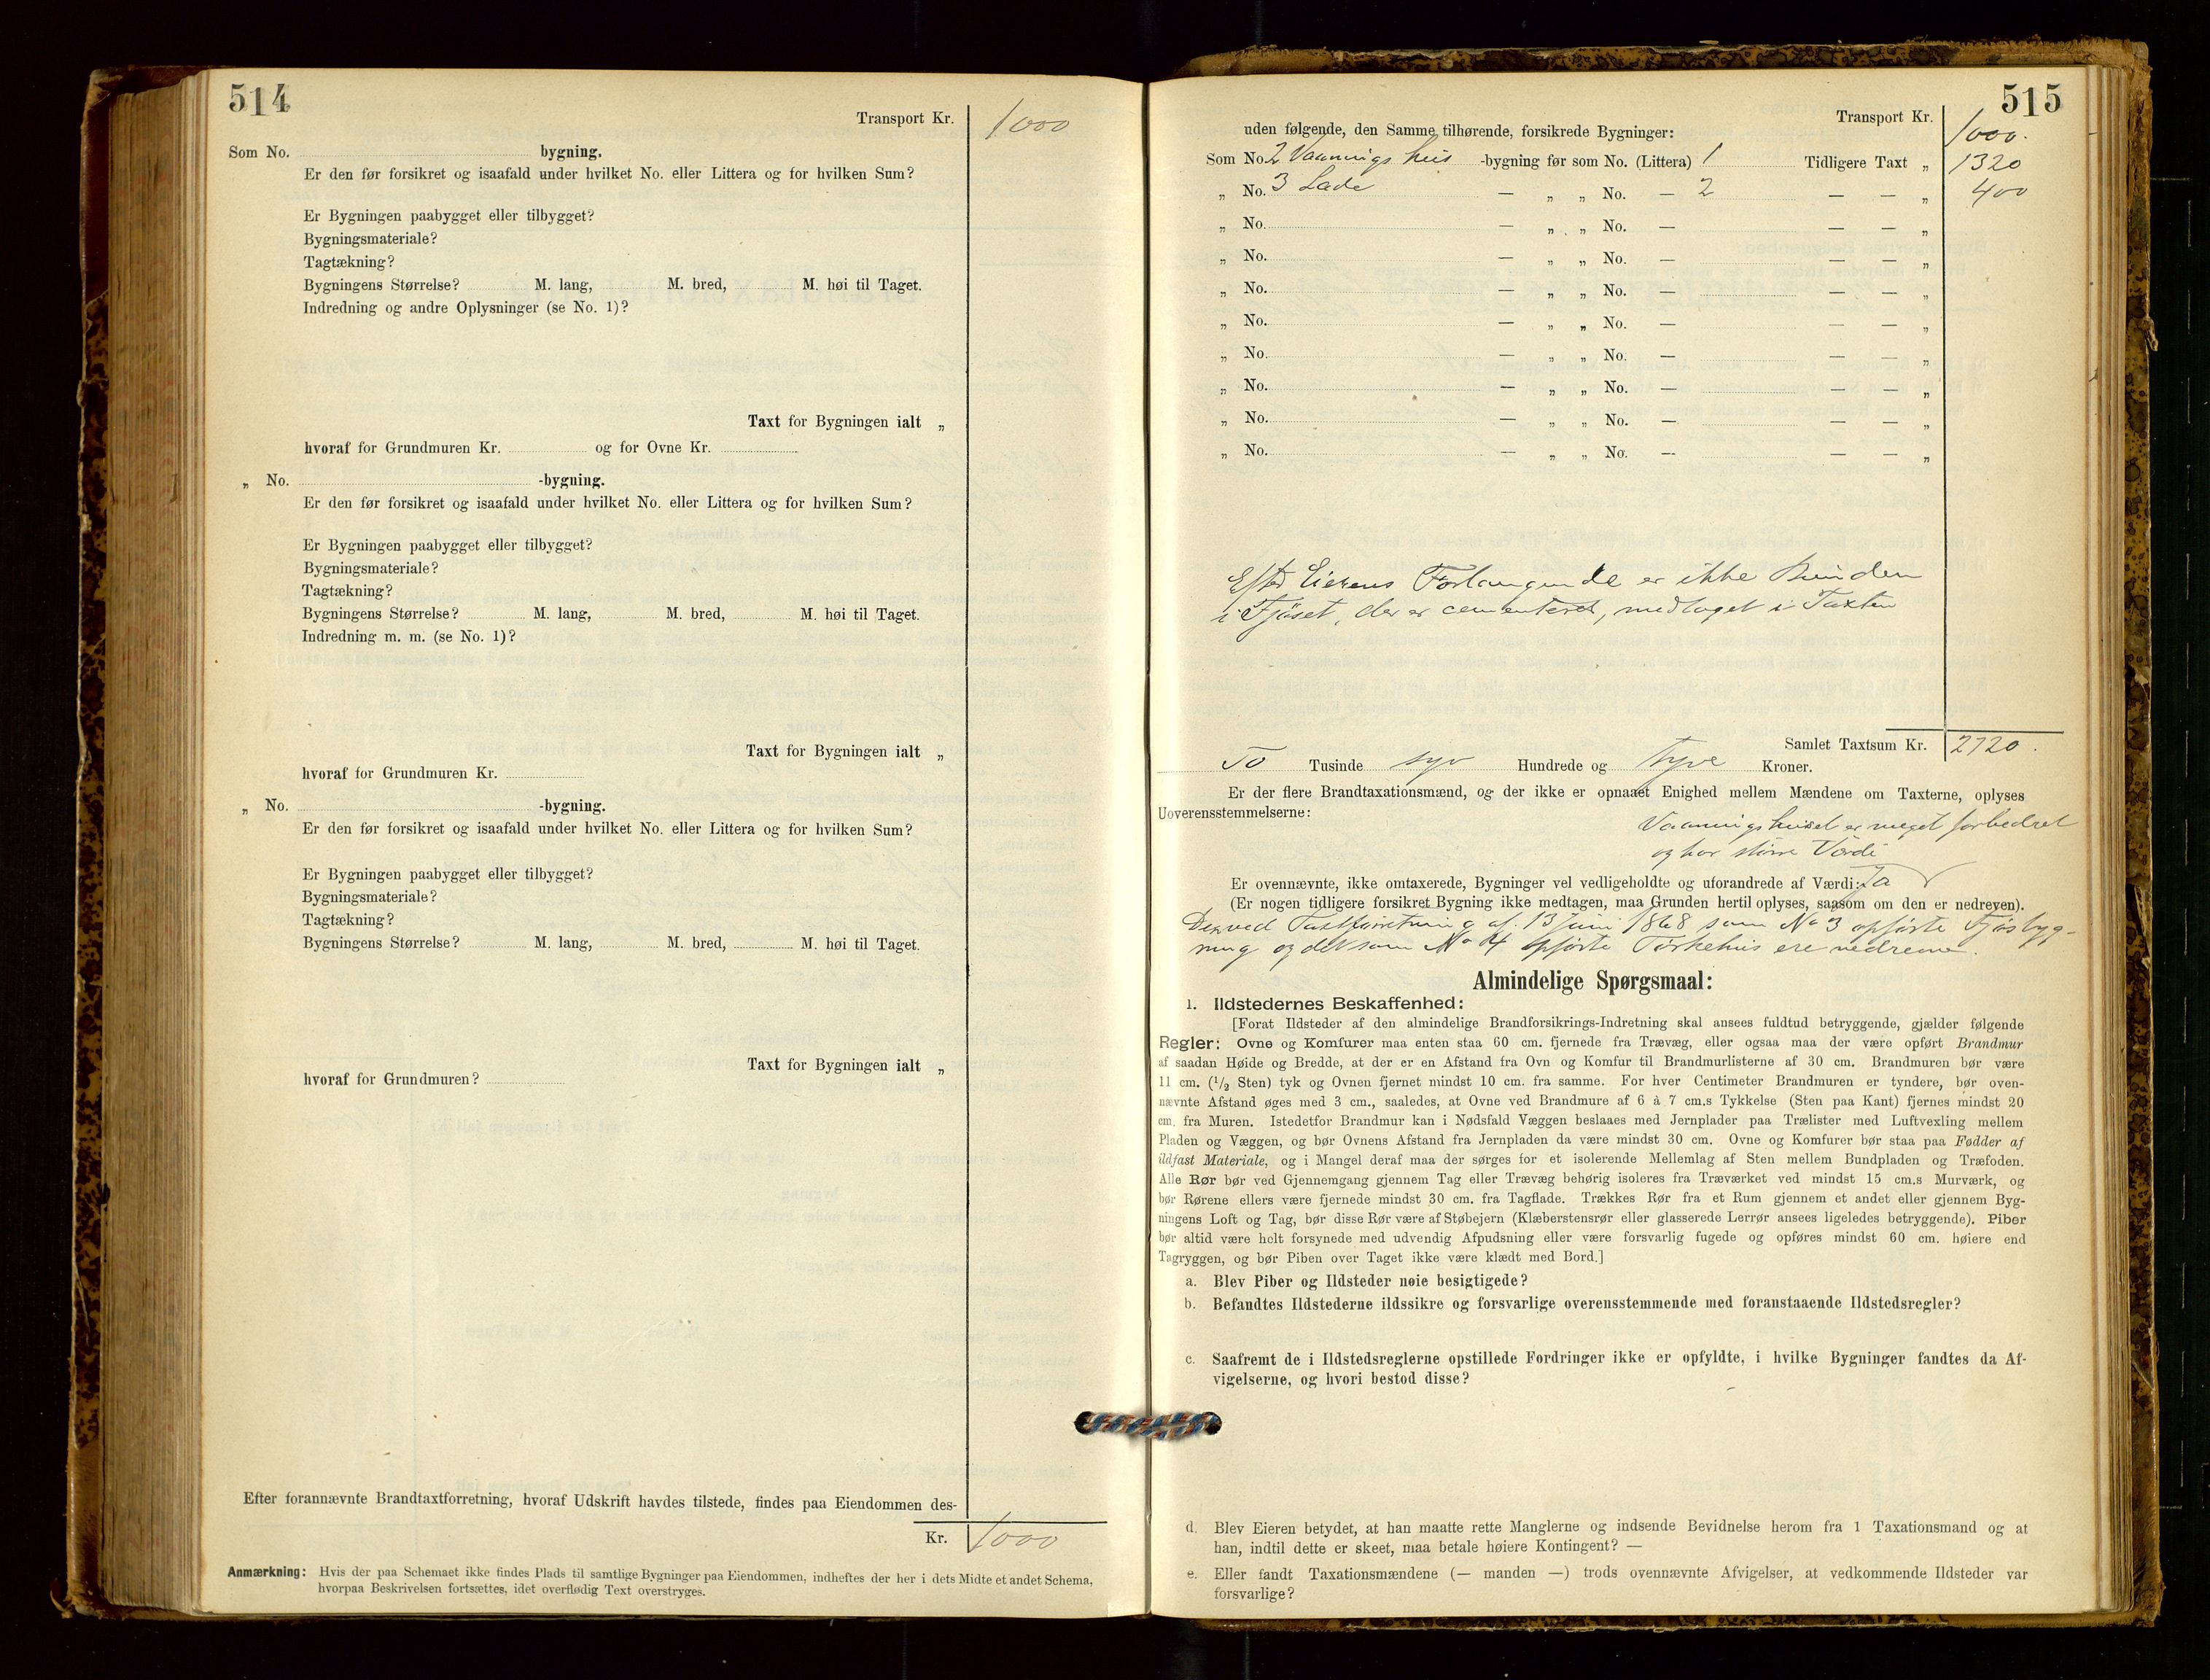 514
Transport Kr. 1000
Som No. bygning.
Er den før forsikret og isaafald under hvilket No. eller Littera og for hvilken Sum?
Er Bygningen paabygget eller tilbygget?
Bygningsmateriale?
Tagtækning?
Bygningens Størrelse? M. lang, M. bred, M. høi til Taget.
Indredning og andre Oplysninger (se No. 1)?
Taxt for Bygningen ialt „
hvoraf for Grundmuren Kr. og for Ovne Kr.
„ No. -bygning.
Er den før forsikret og isaafald under hvilket No. eller Littera og for hvilken Sum?
Er Bygningen paabygget eller tilbygget?
Bygningsmateriale?
Tagtækning?
Bygningens Størrelse? M. lang, M. bred, M. høi til Taget.
Indredning m. m. (se No. 1)?
Taxt for Bygningen ialt „
hvoraf for Grundmuren Kr.
„ No. -bygning.
Er den før forsikret og isaafald under hvilket No. eller Littera og for hvilken Sum?
Er Bygningen paabygget eller tilbygget?
Bygningsmateriale?
Tagtækning?
Bygningens Størrelse? M. lang, M. bred, M. høi til Taget.
Taxt for Bygningen ialt „
hvoraf for Grundmuren?
Efter forannævnte Brandtaxtforretning, hvoraf Udskrift havdes tilstede, findes paa Eiendommen des-
Kr. 1000
Anmærkning: Hvis der paa Schemaet ikke findes Plads til samtlige Bygninger paa Eiendommen, indheftes der her i dets Midte et andet Schema,
hvorpaa Beskrivelsen fortsættes, idet overflødig Text overstryges.
515
Transport Kr. 1000.
uden følgende, den Samme tilhørende, forsikrede Bygninger:
Som No. 2 Vaanings hus -bygning før som No. (Littera) 1 Tidligere Taxt „ 1320
„ No. 3 Lade — „ „ No. — 2 — — „ 400
„ No. — „ „ No. — — — „
„ No. — „ „ No. — — — „
„ No. — „ „ No. — — — „
„ No. — „ „ No. — — — „
„ No. — „ „ No. — — — „
„ No. — „ „ No. — — — „
„ No. — „ „ No. — — — „
„ No. — „ „ No. — — — „
Efter Eierens Forlangende er ikke Bunden
i Fjøset, der er cementeret, medtaget i Taxten
Samlet Taxtsum Kr. 2720.
To Tusinde syv Hundrede og tyve Kroner.
Er der flere Brandtaxationsmænd, og der ikke er opnaaet Enighed mellem Mændene om Taxterne, oplyses
Uoverensstemmelserne:
Vaaningshuset er meget forbedret
og har større Værdi
Er ovennævnte, ikke omtaxerede, Bygninger vel vedligeholdte og uforandrede af Værdi: Ja
(Er nogen tidligere forsikret Bygning ikke medtagen, maa Grunden hertil oplyses, saasom om den er nedreven).
Den ved Taxtforretning af 13 Juni 1868 som No 3 opførte Fjøsbyg-
ning og det som No 4 opførte Tørkehus ere nedrevne.
Almindelige Spørgsmaal:
1. Ildstedernes Beskaffenhed:
[Forat Ildsteder af den almindelige Brandforsikrings-Indretning skal ansees fuldtud betryggende, gjælder følgende
Regler: Ovne og Komfurer maa enten staa 60 cm. fjernede fra Trævæg, eller ogsaa maa der være opført Brandmur
af saadan Høide og Bredde, at der er en Afstand fra Ovn og Komfur til Brandmurlisterne af 30 cm. Brandmuren bør være
11 cm. (1/2 Sten) tyk og Ovnen fjernet mindst 10 cm. fra samme. For hver Centimeter Brandmuren er tyndere, bør oven-
nævnte Afstand øges med 3 cm., saaledes, at Ovne ved Brandmure af 6 à 7 cm.s Tykkelse (Sten paa Kant) fjernes mindst 20
cm. fra Muren. Istedetfor Brandmur kan i Nødsfald Væggen beslaaes med Jernplader paa Trælister med Luftvexling mellem
Pladen og Væggen, og bør Ovnens Afstand fra Jernpladen da være mindst 30 cm. Ovne og Komfurer bør staa paa Fødder af
ildfast Materiale, og i Mangel deraf maa der sørges for et isolerende Mellemlag af Sten mellem Bundpladen og Træfoden.
Alle Rør bør ved Gjennemgang gjennem Tag eller Trævæg behørig isoleres fra Træværket ved mindst 15 cm.s Murværk, og
bør Rørene ellers være fjernede mindst 30 cm. fra Tagflade. Trækkes Rør fra et Rum gjennem et andet eller gjennem Byg-
ningens Loft og Tag, bør disse Rør være af Støbejern (Klæberstensrør eller glasserede Lerrør ansees ligeledes betryggende). Piber
bør altid være helt forsynede med udvendig Afpudsning eller være forsvarlig fugede og opføres mindst 60 cm. høiere end
Tagryggen, og bør Piben over Taget ikke være klædt med Bord.]
a. Blev Piber og Ildsteder nøie besigtigede?
b. Befandtes Ildstederne ildssikre og forsvarlige overensstemmende med foranstaaende Ildstedsregler?
c. Saafremt de i Ildstedsreglerne opstillede Fordringer ikke er opfyldte, i hvilke Bygninger fandtes da Af-
vigelserne, og hvori bestod disse?
d. Blev Eieren betydet, at han maatte rette Manglerne og indsende Bevidnelse herom fra 1 Taxationsmand og at
han, indtil dette er skeet, maa betale høiere Kontingent? —
e. Eller fandt Taxationsmændene (— manden —) trods ovennævnte Afvigelser, at vedkommende Ildsteder var
forsvarlige?